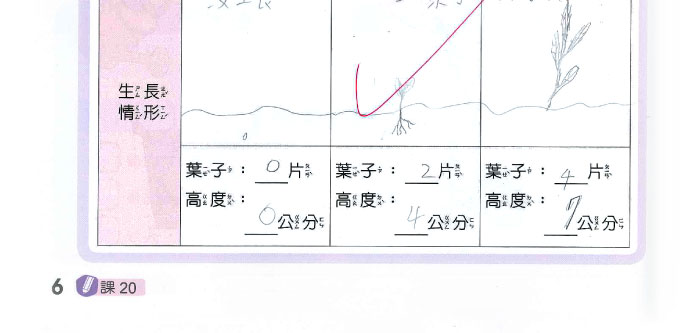 生長
情形
葉子：0片
高度：0公分
葉子：2片
高度：4公分
葉子：4片
高度：7公分
6 課20